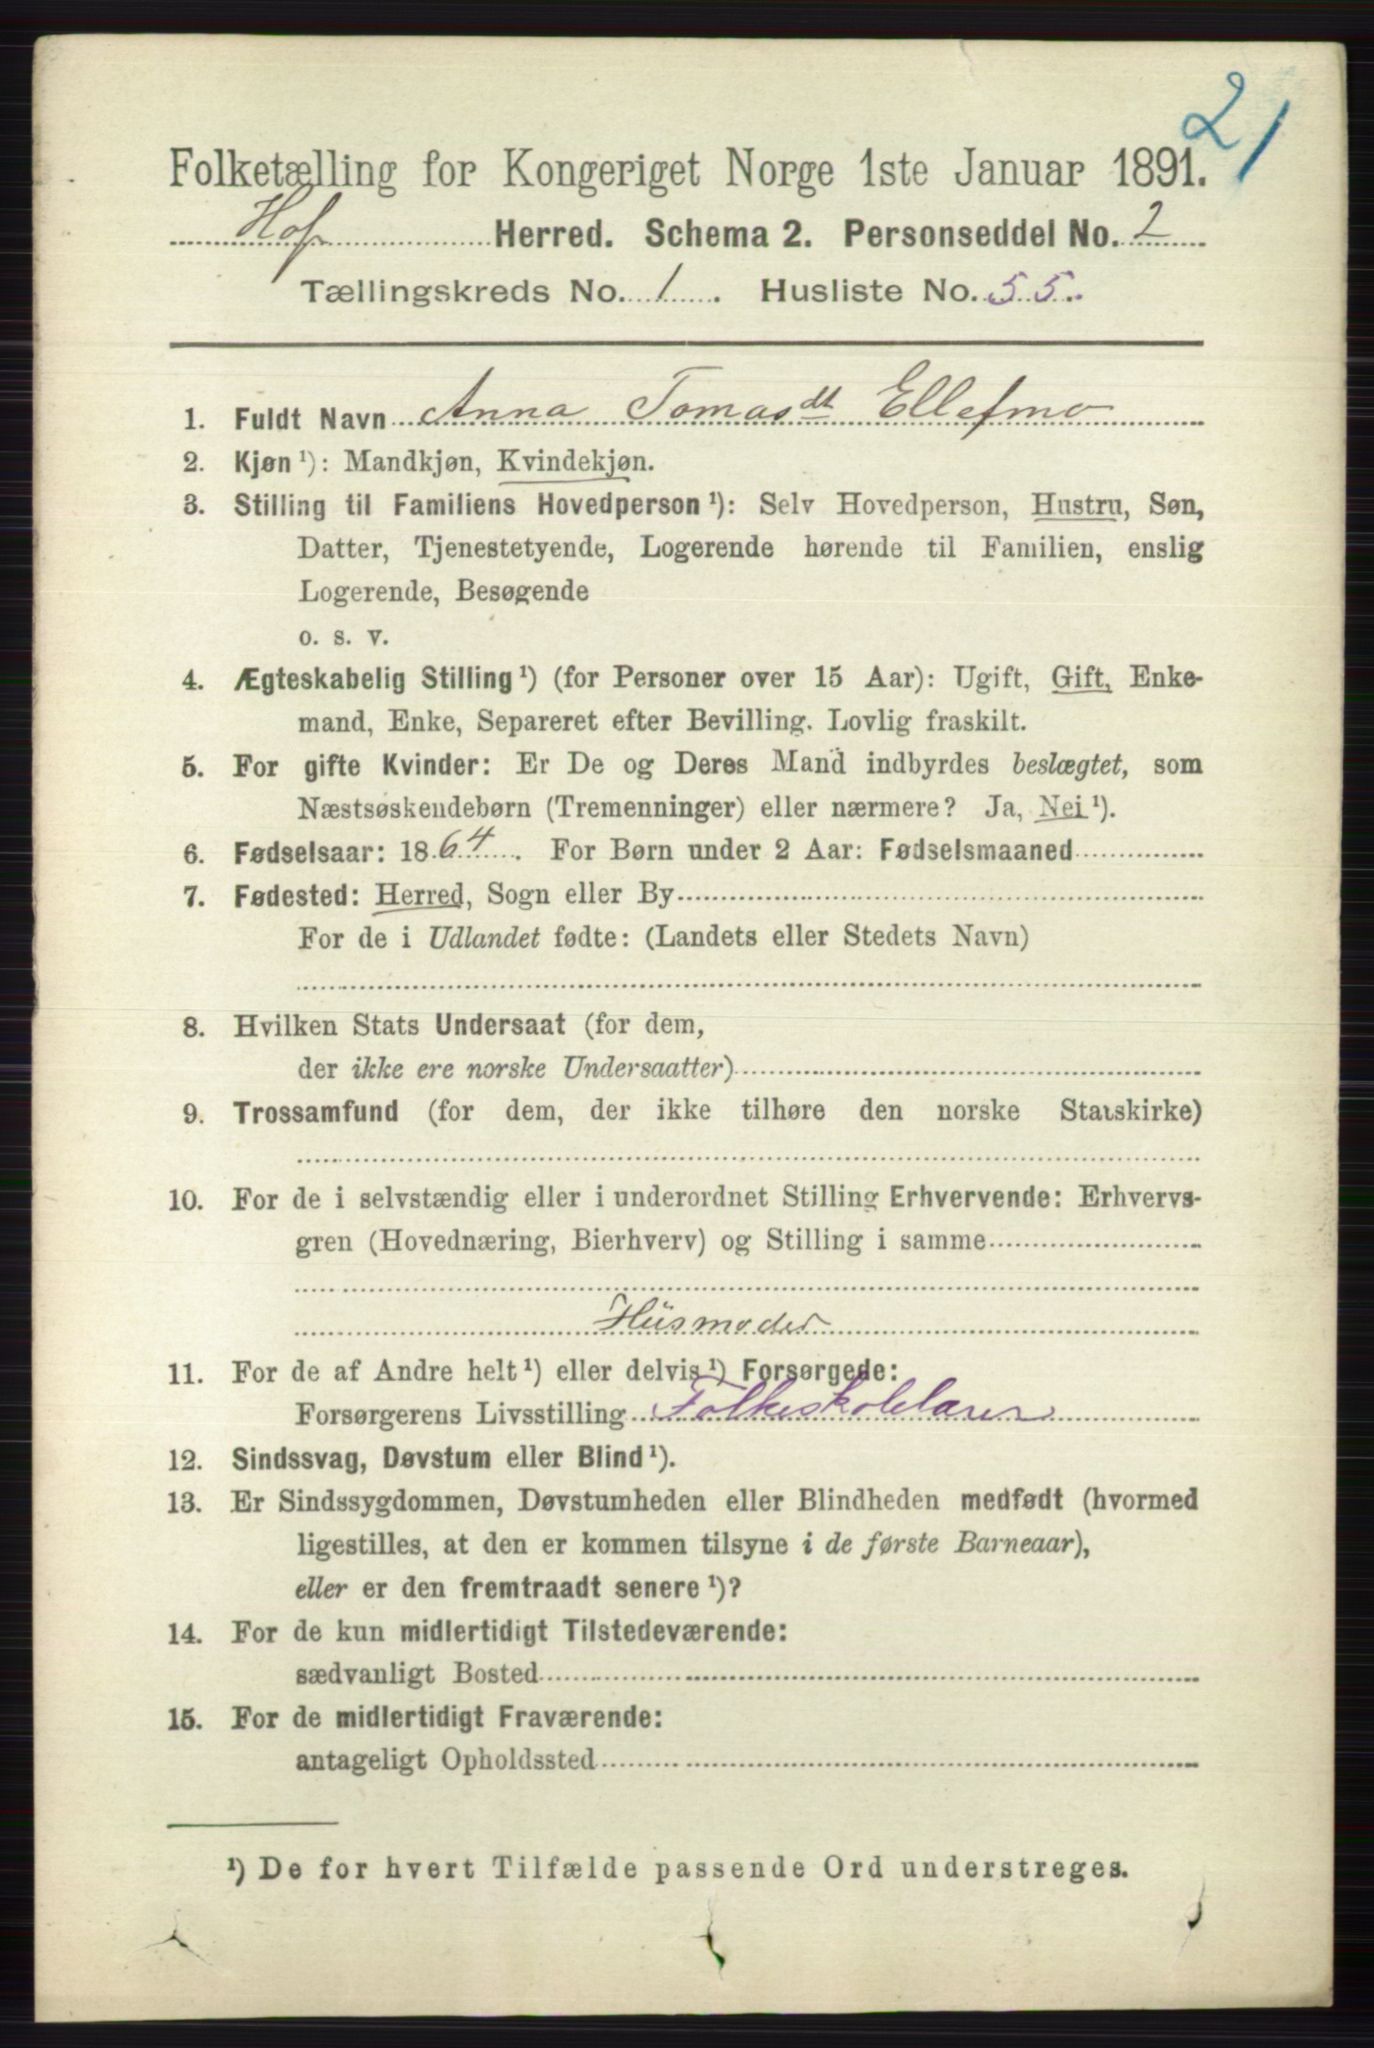 21
Folketælling for Kongeriget Norge 1ste Januar 1891.
Hof Herred. Schema 2. Personseddel No. 2
Tællingskreds No. 1. Husliste No. 55.
1. Fuldt Navn Anna Tomasdt Ellefmo
2. Kjøn ¹): Mandkjøn, Kvindekjøn.
3. Stilling til Familiens Hovedperson ¹): Selv Hovedperson, Hustru, Søn,
Datter, Tjenestetyende, Logerende hørende til Familien, enslig
Logerende, Besøgende
o. s. v.
4. Ægteskabelig Stilling ¹) (for Personer over 15 Aar): Ugift, Gift, Enke-
mand, Enke, Separeret efter Bevilling. Lovlig fraskilt.
5. For gifte Kvinder: Er De og Deres Mand indbyrdes beslægtet, som
Næstsøskendebørn (Tremenninger) eller nærmere? Ja, Nei ¹).
6. Fødselsaar: 1864. For Børn under 2 Aar: Fødselsmaaned
7. Fødested: Herred, Sogn eller By
For de i Udlandet fødte: (Landets eller Stedets Navn)
8. Hvilken Stats Undersaat (for dem,
der ikke ere norske Undersaatter)
9. Trossamfund (for dem, der ikke tilhøre den norske Statskirke)
10. For de i selvstændig eller i underordnet Stilling Erhvervende: Erhvervs-
gren (Hovednæring, Bierhverv) og Stilling i samme
Husmoder
11. For de af Andre helt ¹) eller delvis ¹) Forsørgede:
Forsørgerens Livsstilling Folkeskolelærer
12. Sindssvag, Døvstum eller Blind ¹).
13. Er Sindssygdommen, Døvstumheden eller Blindheden medfødt (hvormed
ligestilles, at den er kommen tilsyne i de første Barneaar),
eller er den fremtraadt senere ¹)?
14. For de kun midlertidigt Tilstedeværende:
sædvanligt Bosted
15. For de midlertidigt Fraværende:
antageligt Opholdssted
¹) De for hvert Tilfælde passende Ord understreges.